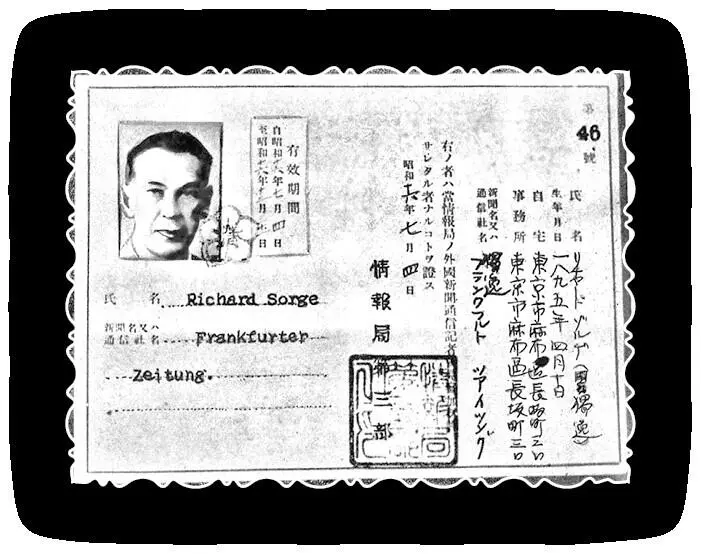 第 46 號
氏名 リヒャード ゾルゲ (國籍 獨逸)
生年月日 一八九五年 四月十日
自宅 東京市麻布區長坂町三〇
事務所 東京市麻布區長坂町三〇
新聞名又ハ
通信社名 獨逸 フランクフルト ツアイツング
右ノ者ハ當情報局ノ外國新聞通信記者
サレタル者ナルコトヲ證ス
昭和十六年七月四日
情報局第三部
有效期間
自昭和十六年七月四日
至昭和 年 月 日
氏名 Richard Sorge
新聞名又ハ
通信社名 Frankfurter
Zeitung.